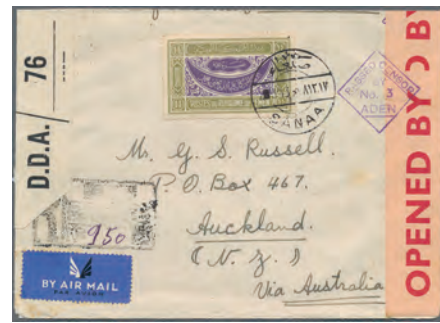 D.D.A./ 76
PASSED CENSOR
No. 3
ADEN
SANAA
OPENED BY
Mr. G. S. Russell.
P.O. Box 467.
Auckland.
(N. Z.)
Via Australia
950
BY AIR MAIL
PAR AVION